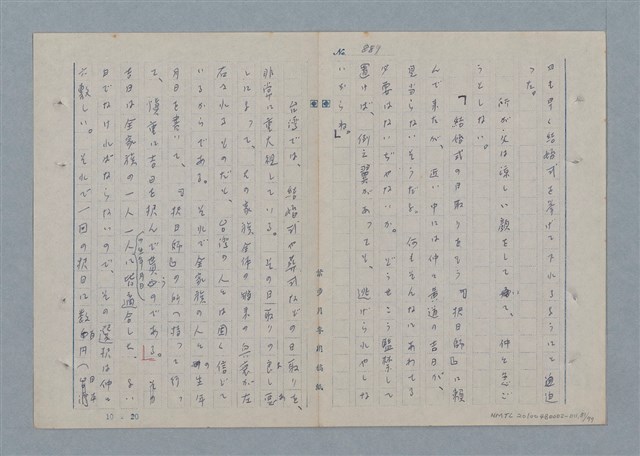 No. 889
日も早く結婚式を挙げて下れるようにて迫
った。
所が父は涼しい顔をして居て、仲々急ご
うとしない。
「結婚式の日取りをもう『択日師』に頼
んで来たが、近い中には仲々黄道の吉日が、
見当らないそうだよ。何もそんなにあわてる
必要はないぢやないか。どうせこう監禁して
置けば、例え翼があっても、逃げられやしな
いからね。」
台湾では、結婚式や葬式などの日取りを、
非常に重大視している。その日取りの良し悪
しによって、その家族全体の将来の運が左
右されるものだと、台湾の人々は固く信じて
いるからである。それで全家族の人々の生年
月日を書いて、『択日師』の所へ持って行っ
て、慎重に吉日を択んで貰うのである。
吉日は全家族の一人一人に皆適合した、よい
日でなければならないので、その選択は仲々
六敷しい。それで一回の択日に数
10×20